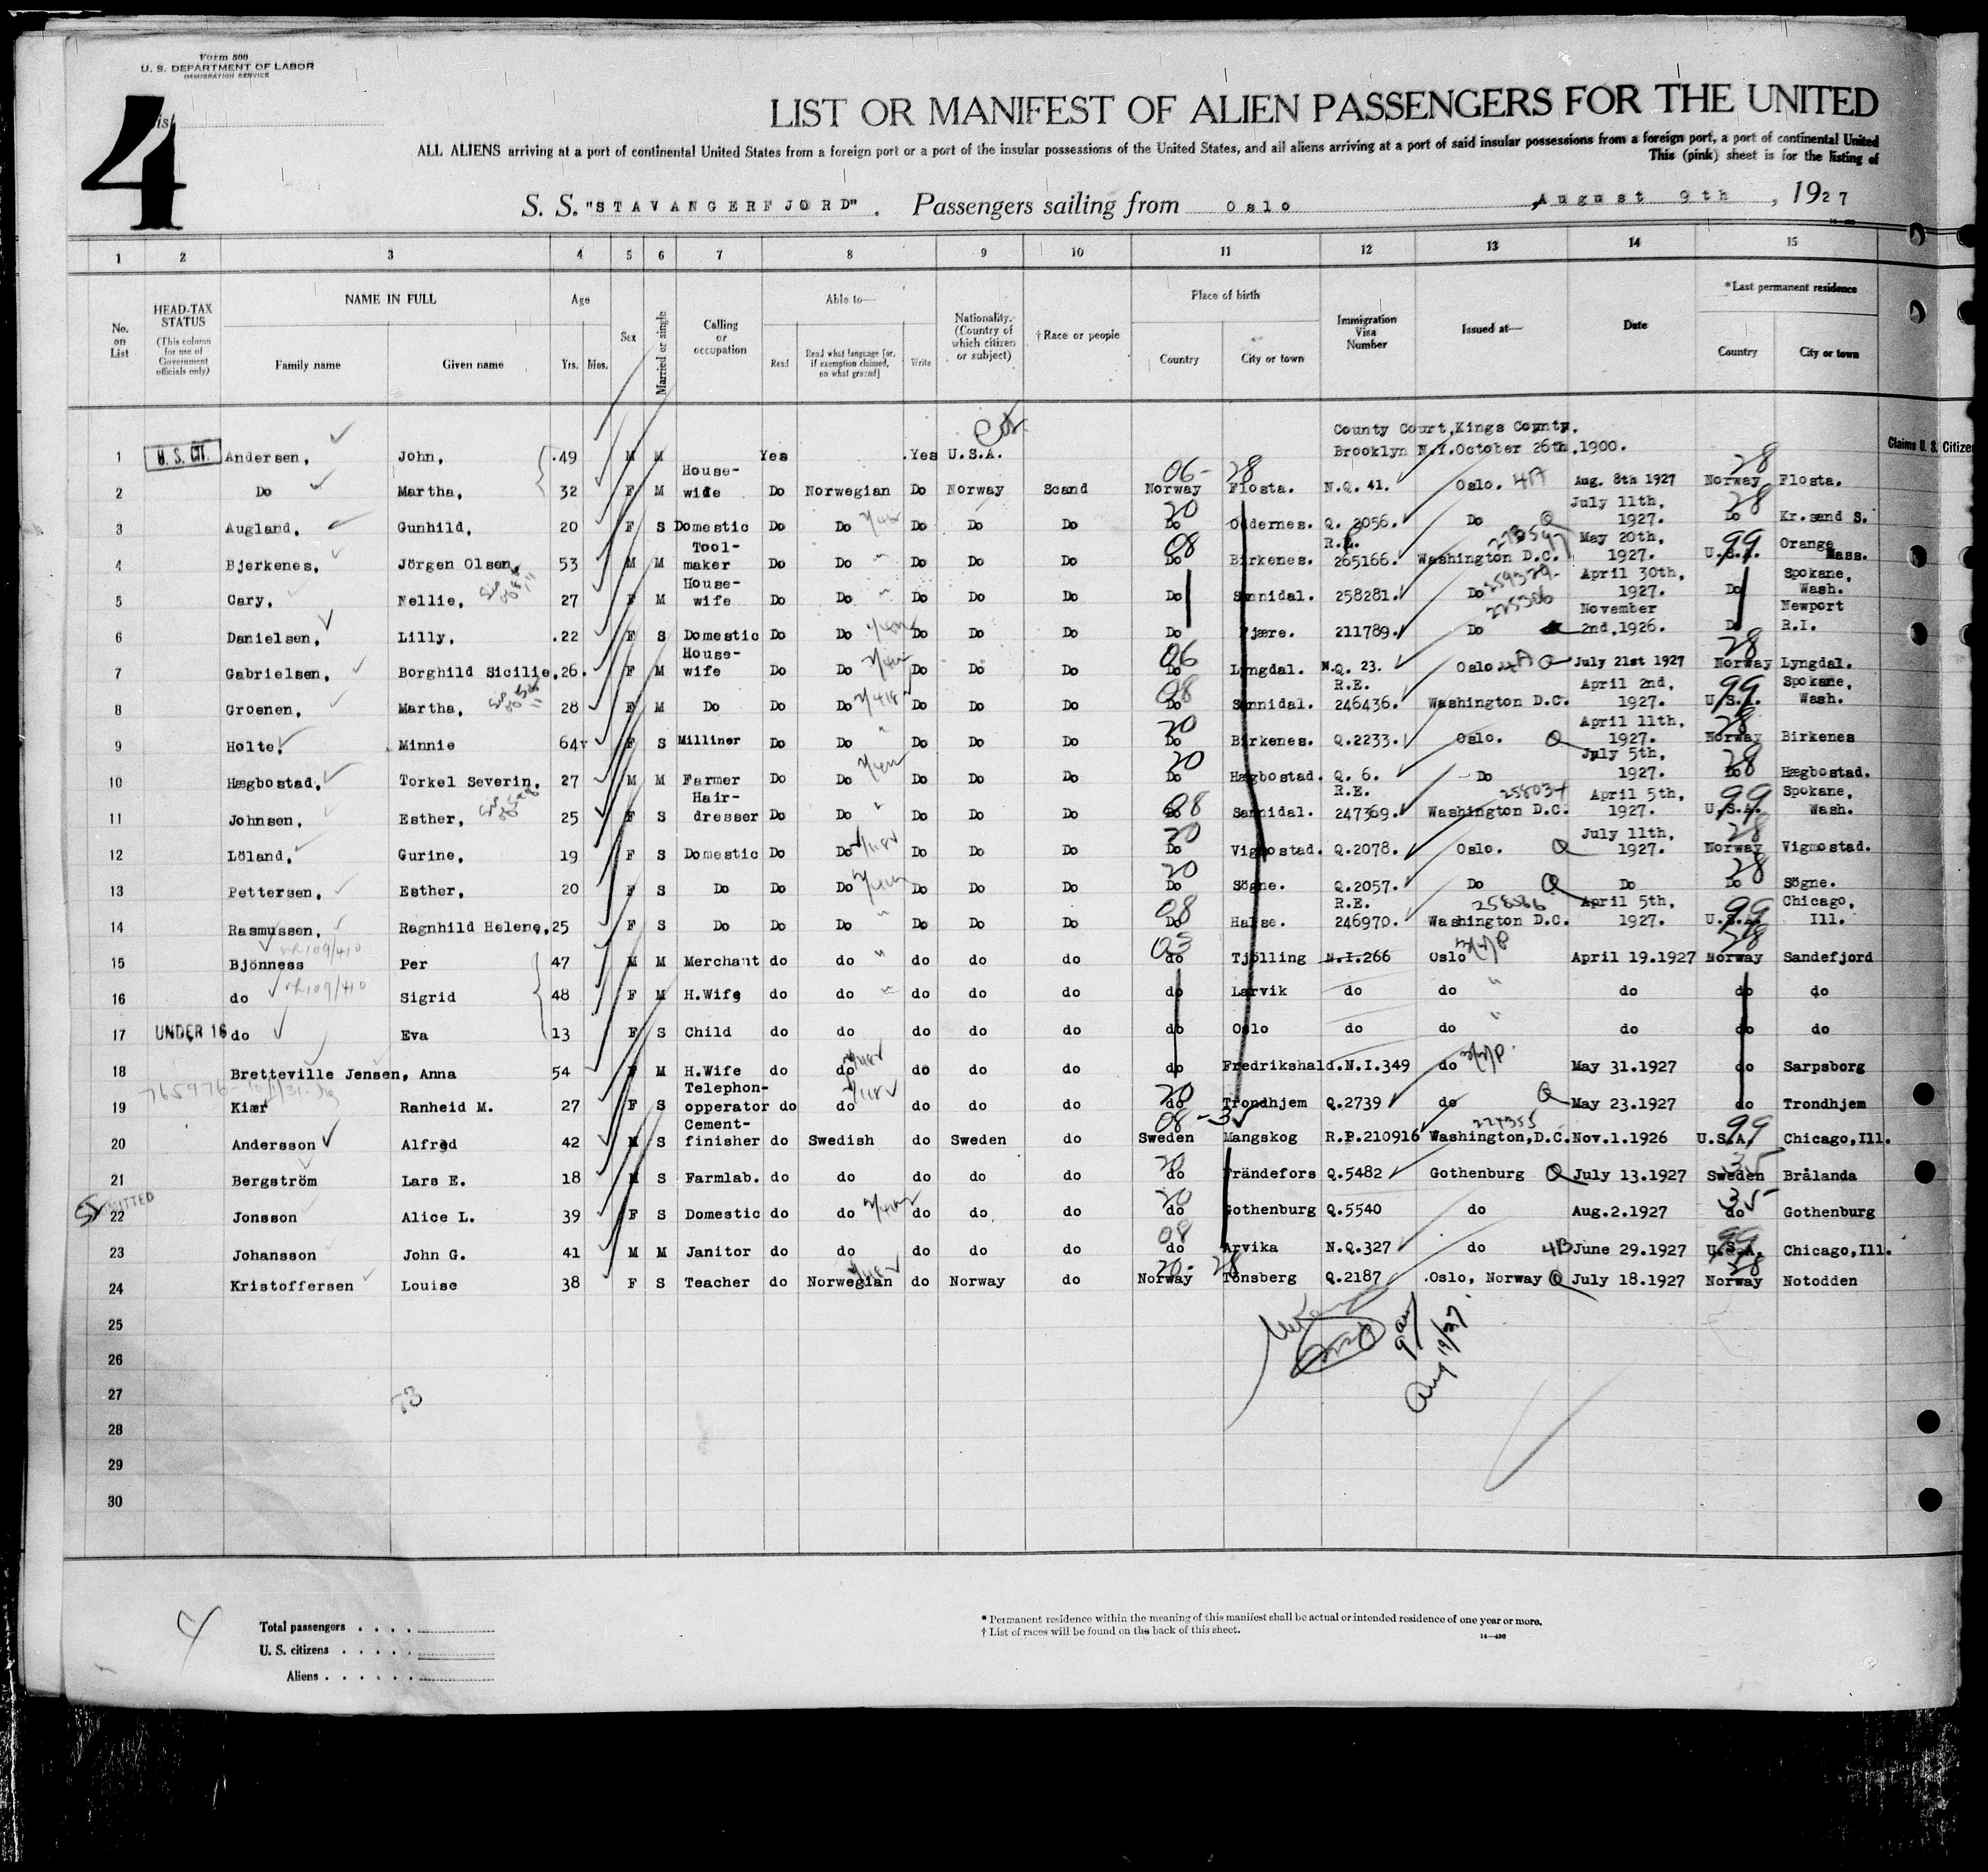 Form 500
U. S. DEPARTMENT OF LABOR
IMMIGRATION SERVICE
4
List
LIST OR MANIFEST OF ALIEN PASSENGERS FOR THE UNITED
ALL ALIENS arriving at a port of continental United States from a foreign port or a port of the insular possessions of the United States, and all aliens arriving at a port of said insular possessions from a foreign port, a port of continental United
This (pink) sheet is for the listing of
S. S. "STAVANGERFJORD". Passengers sailing from Oslo, August 9th, 1927
1 2 3 4 5 6 7 8 9 10 11 12 13 14 15
No. on List
HEAD-TAX STATUS (This column for use of Government officials only)
NAME IN FULL Family name Given name
Age Yrs. Mos.
Sex
Married or single
Calling or occupation
Able to— Read Read what language [or, if exemption claimed, on what ground] Write
Nationality. (Country of which citizen or subject)
† Race or people
Place of birth Country City or town
Immigration Visa Number
Issued at—
Date
*Last permanent residence Country City or town
Claims U. S. Citizen
County Court, Kings County,
1 U. S. CIT. Andersen, John, 49 M M Yes Yes U.S.A. Brooklyn N.Y. October 26th, 1900.
06- 28 28
2 Do Martha, 32 F M House-wife Do Norwegian Do Norway Scand Norway Flosta. N.Q. 41. Oslo. 4A Aug. 8th 1927 Norway Flosta.
3 Augland, Gunhild, 20 F S Domestic Do Do Do Do Do 20 Do Oddernes. Q. 2056. Do Q July 11th, 1927. 28 Do Kr.sand S.
4 Bjerkenes, Jörgen Olsen, 53 M M Tool-maker Do Do Do Do Do 08 Do Birkenes. R.E. 265166. Washington D.C. May 20th, 1927. 99 U.S.A. Orange Mass.
5 Cary, Nellie, 27 F M House-wife Do Do Do Do Do Do Sannidal. 258281. Do 259329 April 30th, 1927. Do Spokane, Wash.
6 Danielsen, Lilly, 22 F S Domestic Do Do Do Do Do Do Fjære. 211789. Do 225306 November 2nd, 1926. Do Newport R.I.
7 Gabrielsen, Borghild Sicilie, 26. F M House-wife Do Do Do Do Do 06 Do Lyngdal. N.Q. 23. Oslo. 4A July 21st 1927 28 Norway Lyngdal.
8 Groenen, Martha, 28 F M Do Do Do Do Do Do 08 Do Sannidal. R.E. 246436. Washington D.C. April 2nd, 1927. 99 U.S.A. Spokane, Wash.
9 Holte, Minnie 64 F S Milliner Do Do Do Do Do 20 Do Birkenes. Q.2233. Oslo. Q April 11th, 1927. 28 Norway Birkenes
10 Hægbostad, Torkel Severin, 27 M M Farmer Do Do Do Do Do 20 Do Hægbostad. Q. 6. Do July 5th, 1927. 28 Do Hægbostad.
11 Johnsen, Esther, 25 F S Hair-dresser Do Do Do Do Do 08 Do Sannidal. R.E. 247369. Washington D.C. April 5th, 1927. 99 U.S.A. Spokane, Wash.
12 Löland, Gurine, 19 F S Domestic Do Do Do Do Do 20 Do Vigmostad. Q.2078. Oslo. Q July 11th, 1927. 28 Norway Vigmostad.
13 Pettersen, Esther, 20 F S Do Do Do Do Do Do 20 Do Sögne. Q.2057. Do Q Do 28 Do Sögne.
14 Rasmussen, Ragnhild Helene, 25 F S Do Do Do Do Do Do 08 Do Halse. R.E. 246970. Washington D.C. April 5th, 1927. 99 U.S.A. Chicago, Ill.
15 Bjönness Per 47 M M Merchant do do do do do 03 do Tjölling N.I.266 Oslo April 19.1927 28 Norway Sandefjord
16 do Sigrid 48 F M H.Wife do do do do do do Larvik do do do do do
17 UNDER 16 do Eva 13 F S Child do do do do do do Oslo do do do do do
18 Bretteville Jensen, Anna 54 F M H.Wife do do do do do do Fredrikshald. N.I.349 do May 31.1927 do Sarpsborg
19 Kiær Ranheid M. 27 F S Telephon-opperator do do do do do 20 do Trondhjem Q.2739 do Q May 23.1927 do Trondhjem
20 Andersson Alfred 42 M S Cement-finisher do Swedish do Sweden do 08 Sweden Mangskog R.P.210916 Washington, D.C. 224355 Nov.1.1926 99 U.S.A. Chicago, Ill.
21 Bergström Lars E. 18 M S Farmlab. do do do do do 20 do Frändefors Q.5482 Gothenburg Q July 13.1927 35 Sweden Brålanda
22 Jonsson Alice L. 39 F S Domestic do do do do do 20 do Gothenburg Q.5540 do Aug.2.1927 35 do Gothenburg
23 Johansson John G. 41 M M Janitor do do do do do 08 do Arvika N.Q.327 do 4B June 29.1927 99 U.S.A. Chicago, Ill.
24 Kristoffersen Louise 38 F S Teacher do Norwegian do Norway do 20- Norway 28 Tönsberg Q.2187 Oslo, Norway Q July 18.1927 28 Norway Notodden
25
26
27
28
29
30
9 am
Aug 19/27
Total passengers
U. S. citizens
Aliens
* Permanent residence within the meaning of this manifest shall be actual or intended residence of one year or more.
† List of races will be found on the back of this sheet.